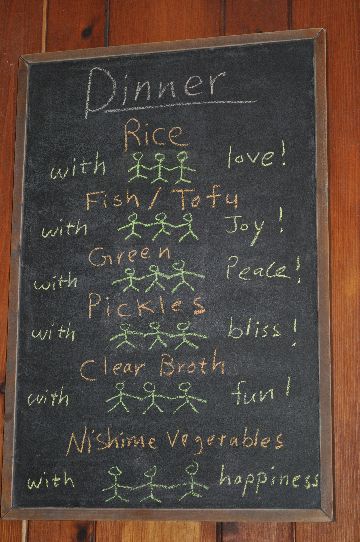 Dinner
Rice
with love!
Fish / Tofu
with Joy!
Green
with Peace!
Pickles
with bliss!
Clear Broth
with fun!
Nishime Vegetables
with happiness